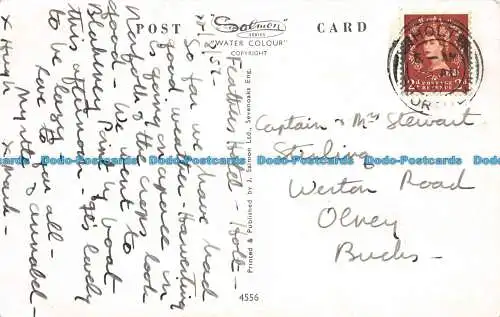 POST
CARD
"Salmon"
SERIES
"WATER COLOUR"
COPYRIGHT
Feathers Hotel - Holt -
So far we have had
good weather - Harvesting
is going on apace in
Norfolk & the crops look
good - We went to
Blakeney Point by boat
this afternoon - It's lovely
to be lazy
Love to you all -
Myrtle & Annabel -
x Hugh x Mark -
Captain & Mrs Stewart
Stirling
Weston Road
Olney
Bucks -
Printed & Published by J. Salmon Ltd., Sevenoaks Eng.
4556
HOLT
NORFOLK
2D POSTAGE REVENUE 2D
Dodo-Postcards Dodo-Postcards Dodo-Postcards Dodo-Postcards